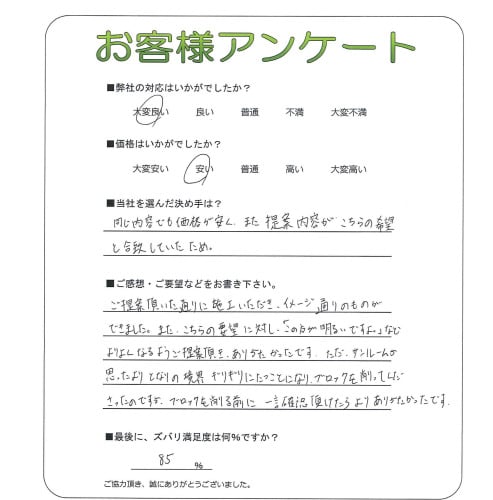 お客様アンケート
■弊社の対応はいかがでしたか？
大変良い 良い 普通 不満 大変不満
■価格はいかがでしたか？
大変安い 安い 普通 高い 大変高い
■当社を選んだ決め手は？
同じ内容でも価格が安く、また提案内容がこちらの希望
と合致していたため。
■ご感想・ご要望などをお書き下さい。
ご提案頂いた通りに施工いただき、イメージ通りのものが
できました。また、こちらの要望に対し、「この方が明るいですよ。」など
よりよくなるようご提案頂き、ありがたかったです。ただ、サンルームが
思ったよりとなりの境界ギリギリにたつことになり、ブロックを削って
さったのですが、ブロックを削る前に一言確認頂けたらよりありがたかったです。
■最後に、ズバリ満足度は何％ですか？
85 ％
ご協力頂き、誠にありがとうございました。